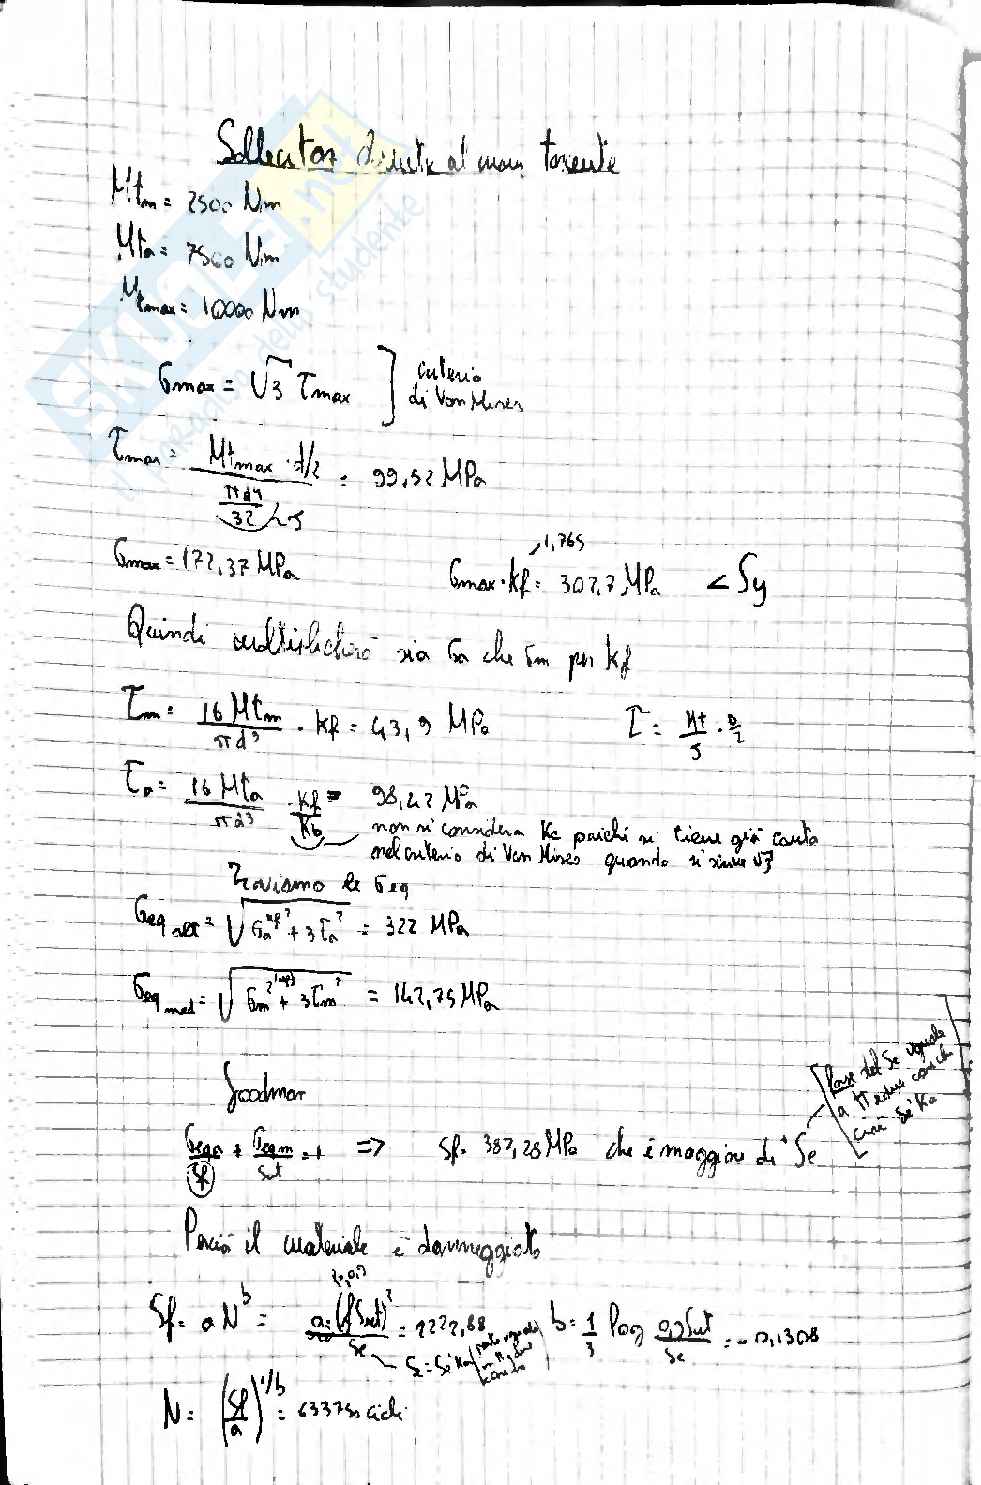 Sollecitaz dovute al mom torcente
Mtm = 2500 Nm
Mta = 7500 Nm
Mtmax = 10000 Nm
SKUOLA.net
il paradiso dello studente
σmax = √3 τmax } criterio di Von Mises
τmax = (Mtmax · d/2) / (πd⁴/32) = 99,52 MPa
↳ J
σmax = 172,37 MPa
1,765
σmax · kf = 302,7 MPa < Sy
Quindi moltiplicherò sia σa che σm per kf
τm = 16 Mtm / πd³ · kf = 43,9 MPa
τ = Mt/J · D/2
τa = 16 Mta / πd³ · kf/kb = 98,42 MPa
non si considera Kc poichè si tiene già conto
nel criterio di Von Mises quando si scrive √3
Troviamo le σeq
σeq alt = √(σa² + 3τa²) = 322 MPa
σeq med = √(σm² + 3τm²) = 142,75 MPa
Goodman
σeqa/Sf + σeqm/Sut = 1 => Sf = 387,28 MPa che è maggiore di Se
Perciò il materiale è danneggiato
Sf = a N^b = a = (f Sut)²/Se = 2222,68 b = 1/3 log 0,9Sut/Se = -0,1308
Se = Se' Ka
N = (Sf/a)^1/b = 633750 cicli